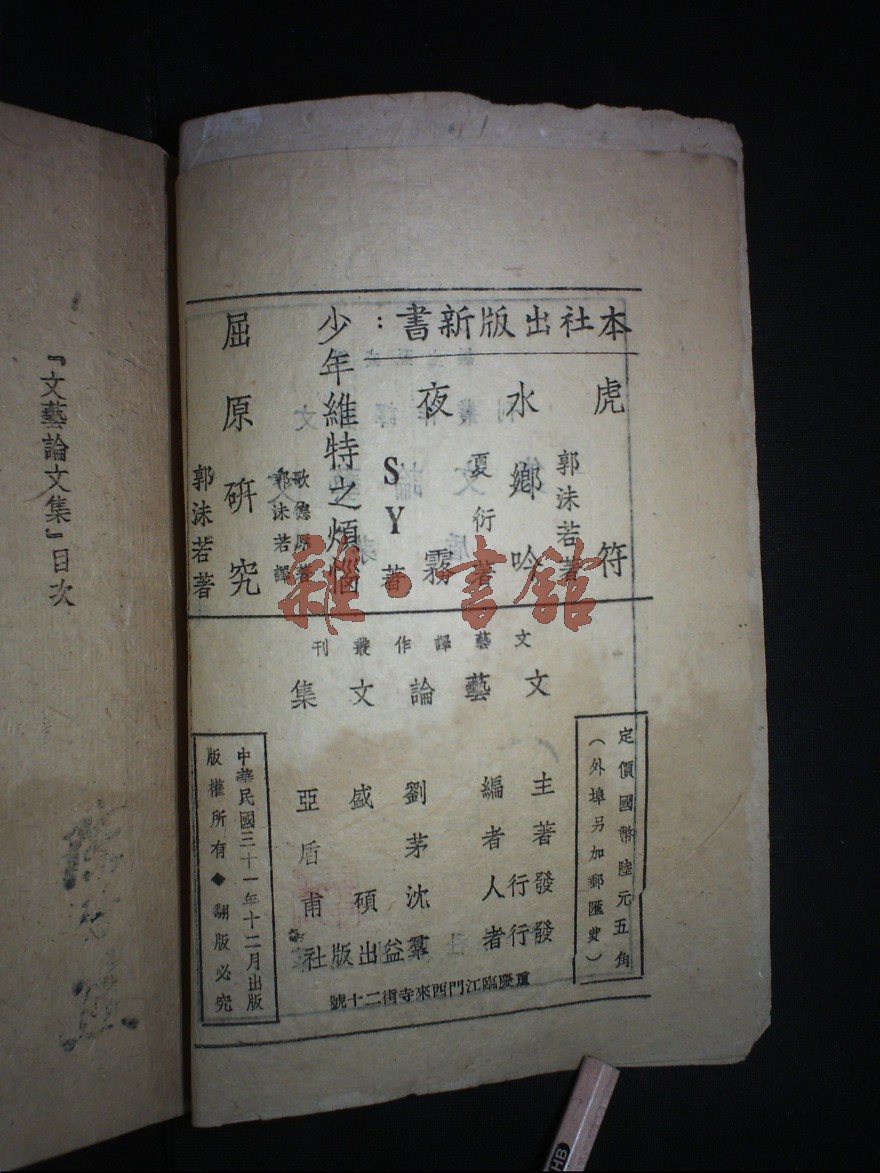 本社出版新書：
虎符
郭沫若著
水鄉吟
夏衍著
夜霧
SY著
少年維特之煩惱
歌德原著
郭沫若譯
屈原研究
郭沫若著
文藝譯作叢刊
文藝論文集
定價國幣陸元五角
（外埠另加郵匯費）
主編者 劉盛亞
著者 茅盾
發行人 沈碩甫
發行者 羣益出版社
中華民國三十一年十二月出版
版權所有◆翻版必究
重慶臨江門西來寺街二十號
『文藝論文集』目次
雜·書館
HB